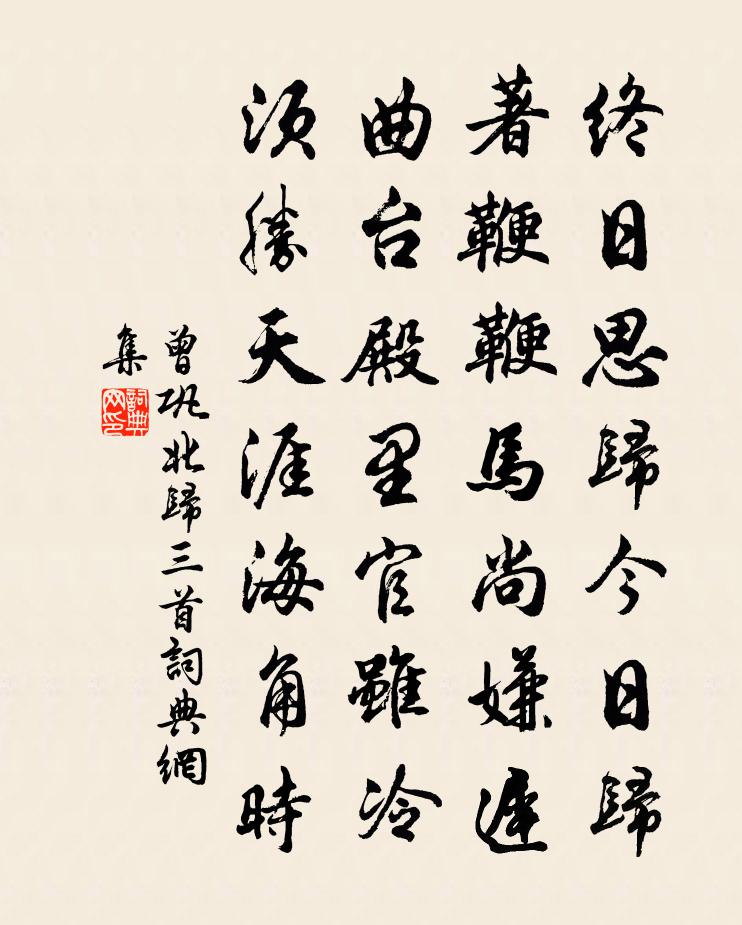 終日思歸今日歸
著鞭鞭馬尚嫌遲
曲台殿里官雖冷
須勝天涯海角時
曾巩北歸三首詞典網
集
詞典
网印